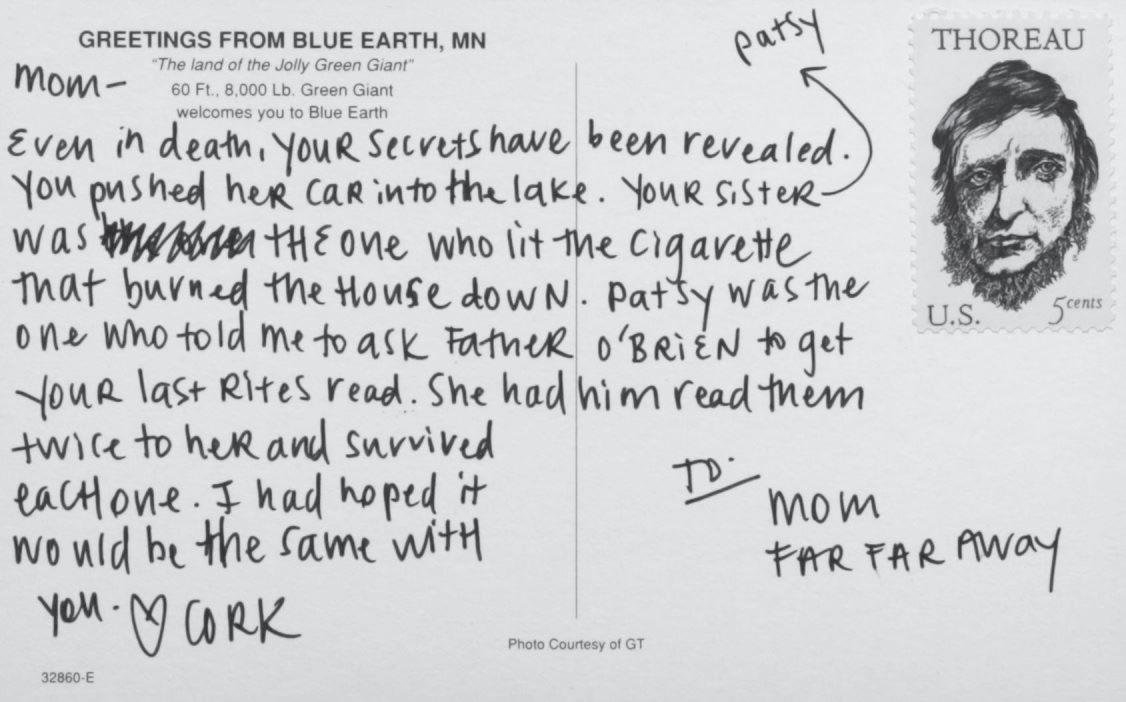 GREETINGS FROM BLUE EARTH, MN
"The land of the Jolly Green Giant"
60 Ft., 8,000 Lb. Green Giant
welcomes you to Blue Earth
Mom-
Even in death, your secrets have been revealed.
You pushed her car into the lake. Your sister
patsy
was THE one who lit the cigarette
that burned the House down. Patsy was the
one who told me to ask Father O'Brien to get
your last Rites read. She had him read them
twice to her and survived
each one. I had hoped it
would be the same with
you. CORK
TO:
Mom
FAR FAR AWAY
THOREAU
U.S. 5 cents
Photo Courtesy of GT
32860-E